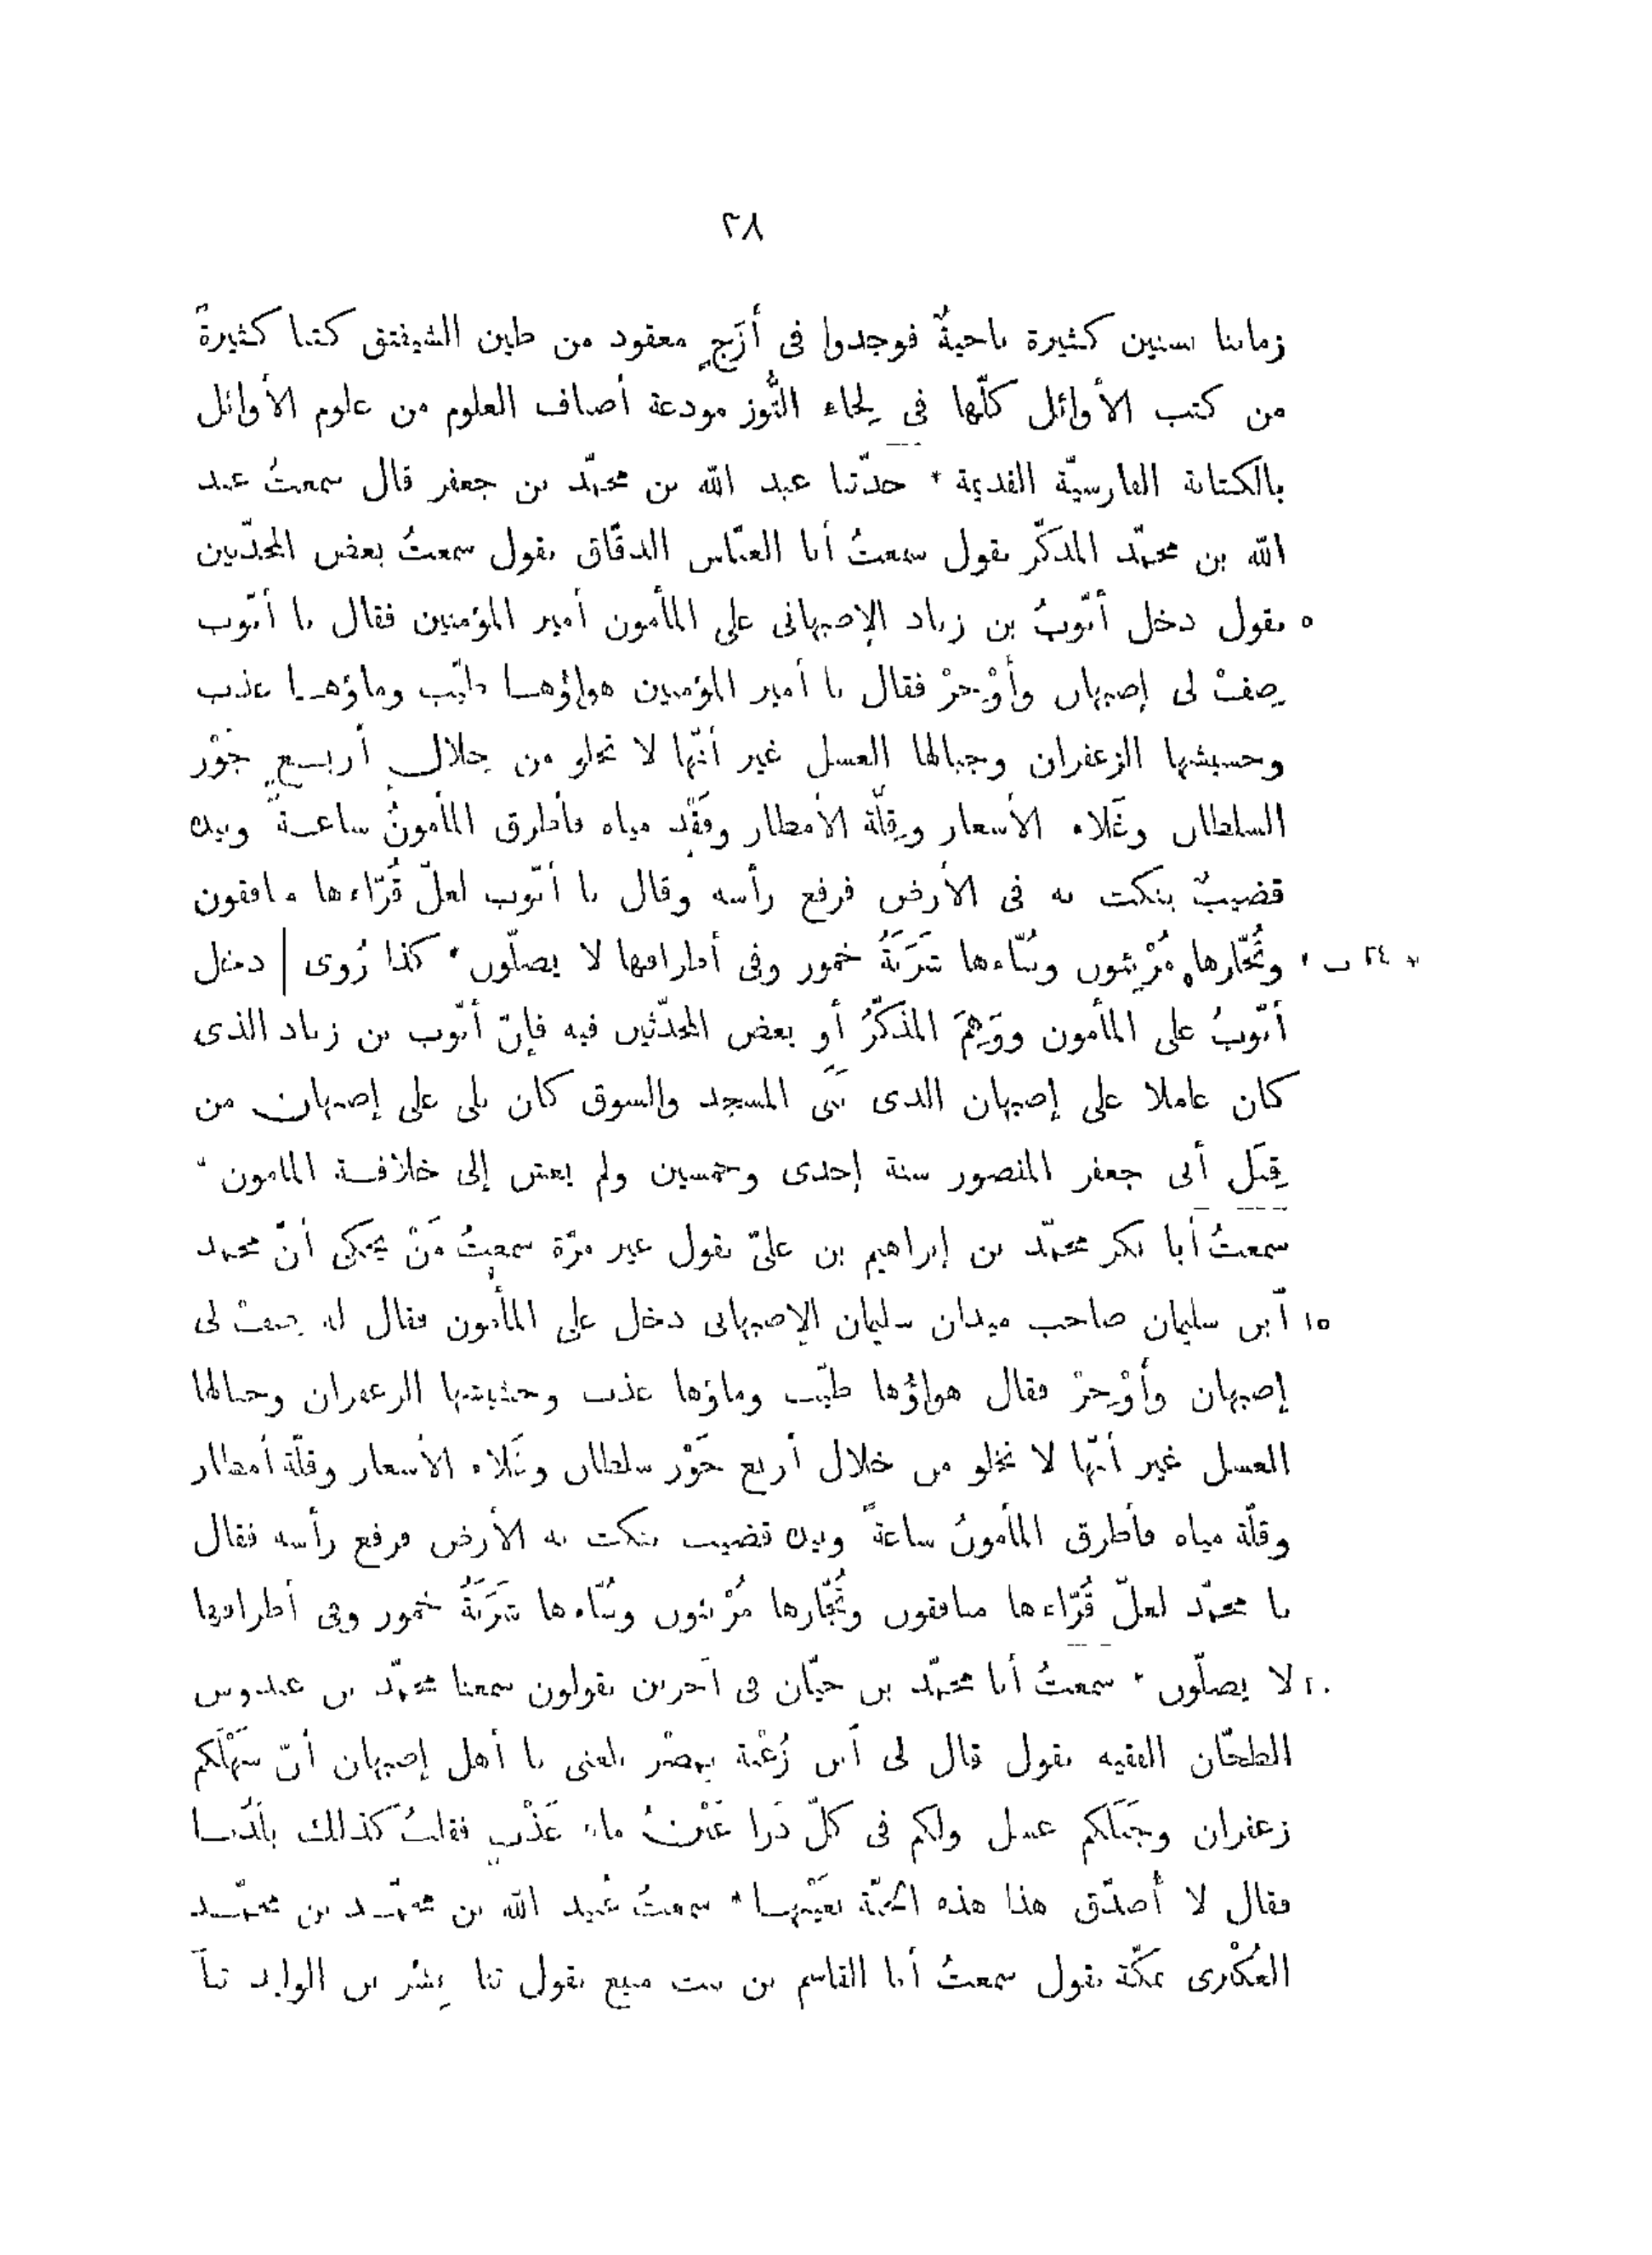 ٢٨
زماننا بسنين كثيرة ناحيةٌ فوجدوا فى أَزَجٍ معقود من طين الشيفتق كتبا كثيرةً
من كتب الأوائل كلّها فى لِحاء التُّوز مودعة أصناف العلوم من علوم الأوائل
بالكتابة الفارسيّة القديمة * حدّثنا عبد اللّه بن محمّد بن جعفر قال سمعتُ عبد
اللّه بن محمّد المذكّر يقول سمعتُ أبا العبّاس الدقّاق يقول سمعتُ بعض المحدّثين
٥ يقول دخل أيّوبُ بن زياد الإصبهانى على المأمون أمير المؤمنين فقال يا أيّوب
صِفْ لى إصبهان وأَوْجِزْ فقال يا أمير المؤمنين هواؤها طيّب وماؤها عذب
وحشيشها الزعفران وجبالها العسل غير أنّها لا تخلو من خِلالٍ أربعٍ جَوْر
السلطان وغَلاء الأسعار وقِلّة الأمطار وفَقْد مياه فأطرق المأمونُ ساعةً وبيده
قضيبٌ ينكت به فى الأرض فرفع رأسه وقال يا أيّوب لعلّ قُرّاءها منافقون
* ٢٤ ب * وتُجّارها مُرْبِئون وبُنّاءها شَرَبَةُ خمور وفى أطرافها لا يصلّون * كذا رُوى | دخل
أيّوبُ على المأمون ووَهِمَ المذكّرُ أو بعض المحدّثين فيه فإنّ أيّوب بن زياد الذى
كان عاملا على إصبهان الذى بَنَى المسجد والسوق كان يلى على إصبهان من
قِبَل أبى جعفر المنصور سنة إحدى وخمسين ولم يعش إلى خلافة المامون *
سمعتُ أبا بكر محمّد بن إبراهيم بن علىّ يقول غير مرّة سمعتُ مَنْ يحكى أنّ محمد
١٥ ٱبن سليمان صاحب ميدان سليمان الإصبهانى دخل على المأمون فقال له صفْ لى
إصبهان وأَوْجِزْ فقال هواؤُها طيّب وماؤها عذب وحشيشها الزعفران وجبالها
العسل غير أنّها لا تخلو من خلال أربع جَوْر سلطان وغَلاء الأسعار وقلّة أمطار
وقلّة مياه فأطرق المأمونُ ساعةً وبيده قضيب ينكت به الأرض فرفع رأسه فقال
يا محمّد لعلّ قُرّاءها منافقون وتُجّارها مُرْبئون وبُنّاءها شَرَبَةُ خمور وفى أطرافها
٢٠ لا يصلّون * سمعتُ أبا محمّد بن حيّان فى آخرين يقولون سمعنا محمّد بن عبدوس
الطحّان الفقيه يقول قال لى ٱبن زُغْبة بمِصْر بلغنى يا أهل إصبهان أنّ سَهْلَكم
زعفران وجَبَلَكم عسل ولكم فى كلّ دَرا عَيْنُ ماء عَذْبٍ فقلتُ كذلك بَلَدُنا
فقال لا أُصدّق هذا هذه الجنّة بعَيْنها * سمعتُ عُبيد اللّه بن محمّد بن محمّد
العُكْبرى بمكّة يقول سمعتُ أبا القاسم بن بنت منيع يقول ثنا بِشْر بن الوليد ثنا